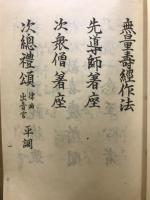 無量壽經作法
先導師著座
次衆僧著座
次總禮頌 律曲 出音宮 平調